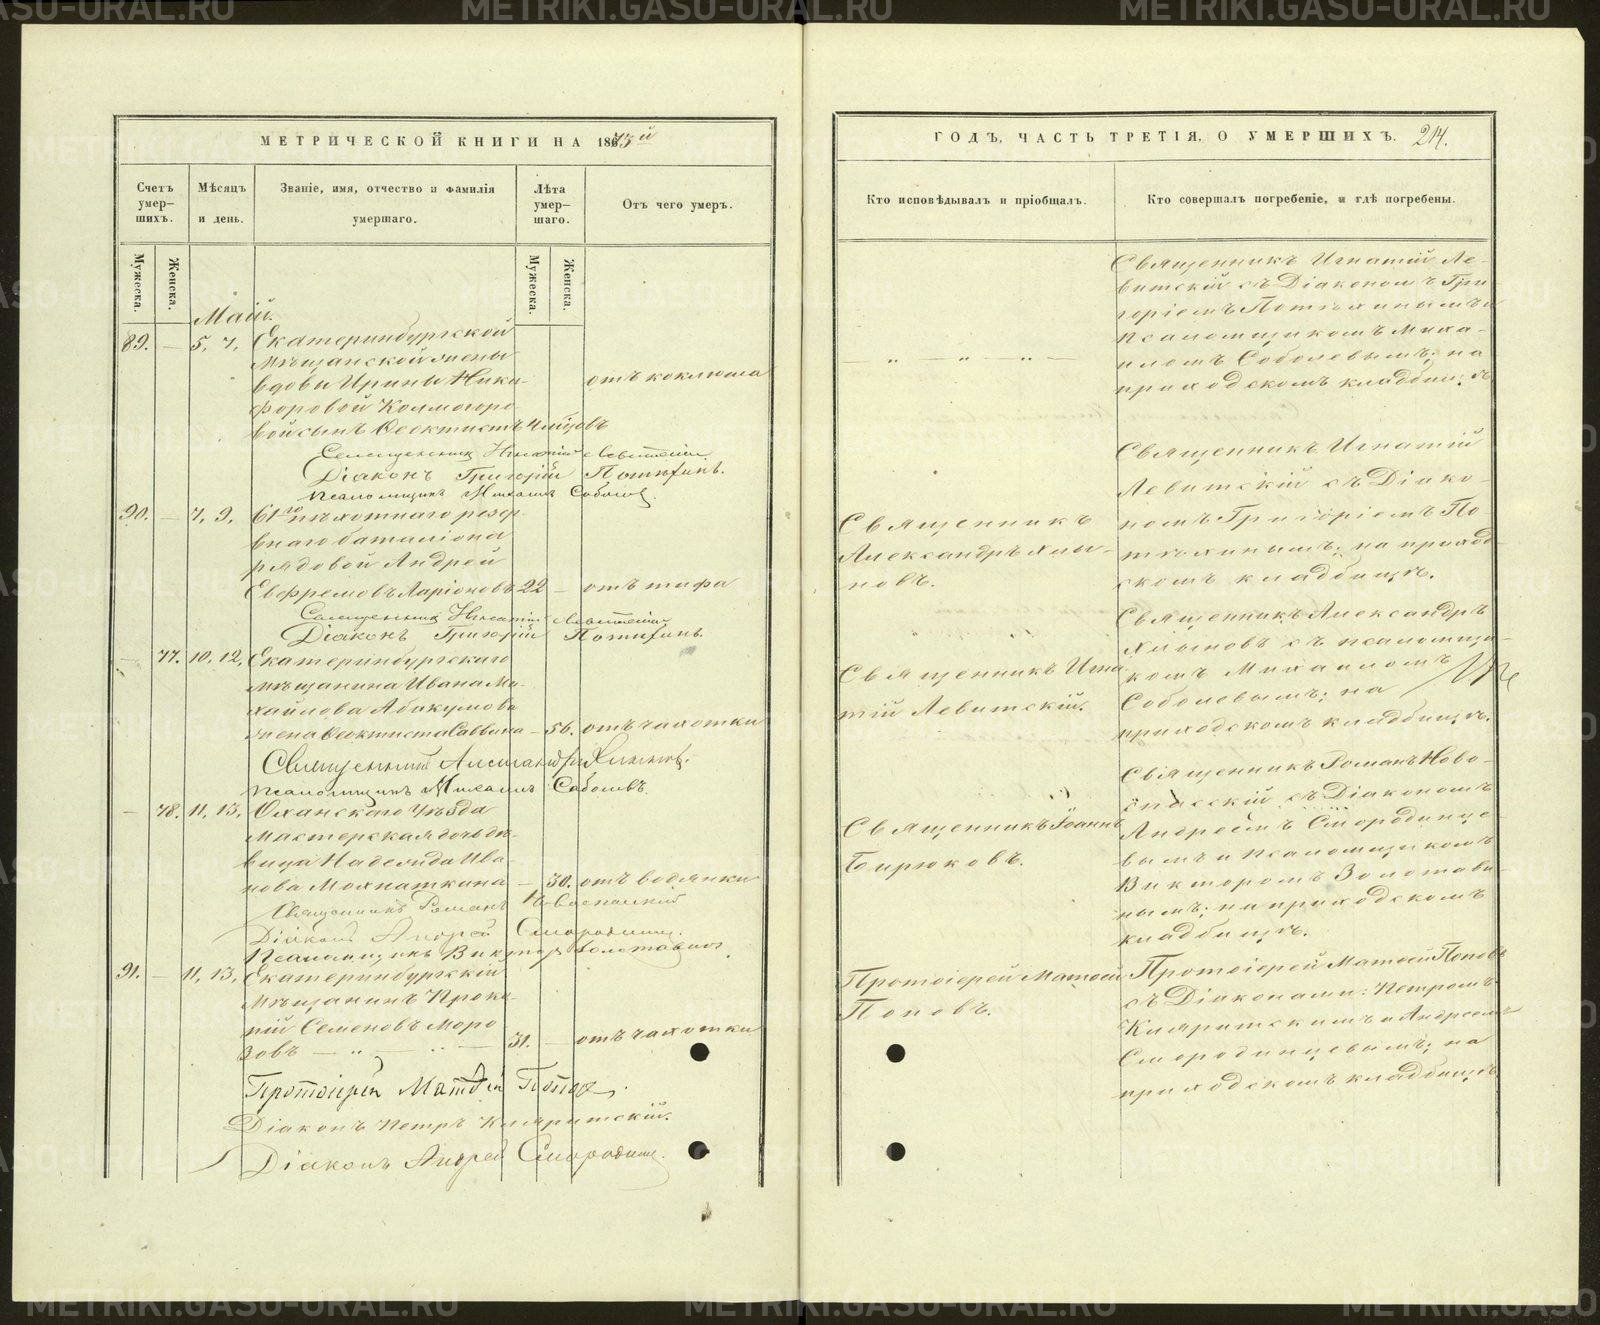 METRIKI.GASU-URAL.RU
МЕТРИЧЕСКОЙ КНИГИ НА 1873й
Счетъ умер-шихъ.
Мѣсяцъ и день.
Званіе, имя, отчество и фамилія умершаго.
Лѣта умер-шаго.
Отъ чего умеръ.
Мужеска.
Женска.
Мужеска.
Женска.
Маій.
89. — 5, 7, Екатеринбургской
мѣщанской жены
вдовы Ирины Ники-
форовой Колмогоро
вой сынъ Ѳеоктистъ 4 мѣсцовъ
отъ коклюша
Священникъ Игнатій Левитскій
Діаконъ Григорій Потѣхинъ.
Псаломщикъ Михаилъ Соболев
90. — 7, 9, 61го пѣхотнаго резер-
внаго баталіона
рядовой Андрей
Евфремовъ Ларіоновъ 22 — отъ тифа
Священникъ Игнатій Левитскій
Діаконъ Григорій Потѣхинъ.
— 77. 10, 12, Екатеринбургскаго
мѣщанина Ивана Ми-
хайлова Абакумова
жена Ѳеоктиста Саввина — 56. отъ чахотки
Священникъ Александръ Хлыновъ.
Псаломщикъ Михаилъ Соболевъ.
— 78. 11, 13, Оханскаго Уѣзда
Мастерская дочь дѣ-
вица Надежда Ива-
нова Мохнаткина — 30. отъ водянки
Священникъ Романъ Новоспасскій
Діаконъ Андрей Смородинц.
Псаломщикъ Викторъ Золотавинъ
91. — 11, 13, Екатеринбургскій
Мѣщанинъ Проко-
пій Семеновъ Моро
зовъ — „ — „ — 31. — отъ чахотки
Протоіерей Матѳей Поповъ.
Діаконъ Петръ Кляритскій.
Діаконъ Андрей Смородинц.
ГОДЪ, ЧАСТЬ ТРЕТІЯ, О УМЕРШИХЪ.
214.
Кто исповѣдывалъ и пріобщалъ.
Кто совершалъ погребеніе, и гдѣ погребены.
— „ — „ — „ —
Священникъ Игнатій Ле-
витскій съ Діакономъ Гри
горіемъ Потѣхинымъ и
псаломщикомъ Миха-
иломъ Соболевымъ; на
приходскомъ кладбищѣ
Священникъ
Александръ Хлы-
новъ.
Священникъ Игнатій
Левитскій съ Діако-
номъ Григоріемъ По-
тѣхинымъ; на приход-
скомъ кладбищѣ.
Священникъ Игна
тій Левитскій.
Священникъ Александръ
Хлыновъ съ псаломщи-
комъ Михаиломъ
Соболевымъ; на
приходскомъ кладбищѣ.
Священникъ Іоаннъ
Бирюковъ.
Священникъ Романъ Ново-
спасскій съ Діакономъ
Андреемъ Смородинце-
вымъ и псаломщикомъ
Викторомъ Золотави-
нымъ; на приходскомъ
кладбищѣ.
Протоіерей Матѳей
Поповъ.
Протоіерей Матѳей Поповъ
съ Діаконами: Петромъ
Кляритскимъ и Андреемъ
Смородинцевымъ; на
приходскомъ кладбищѣ